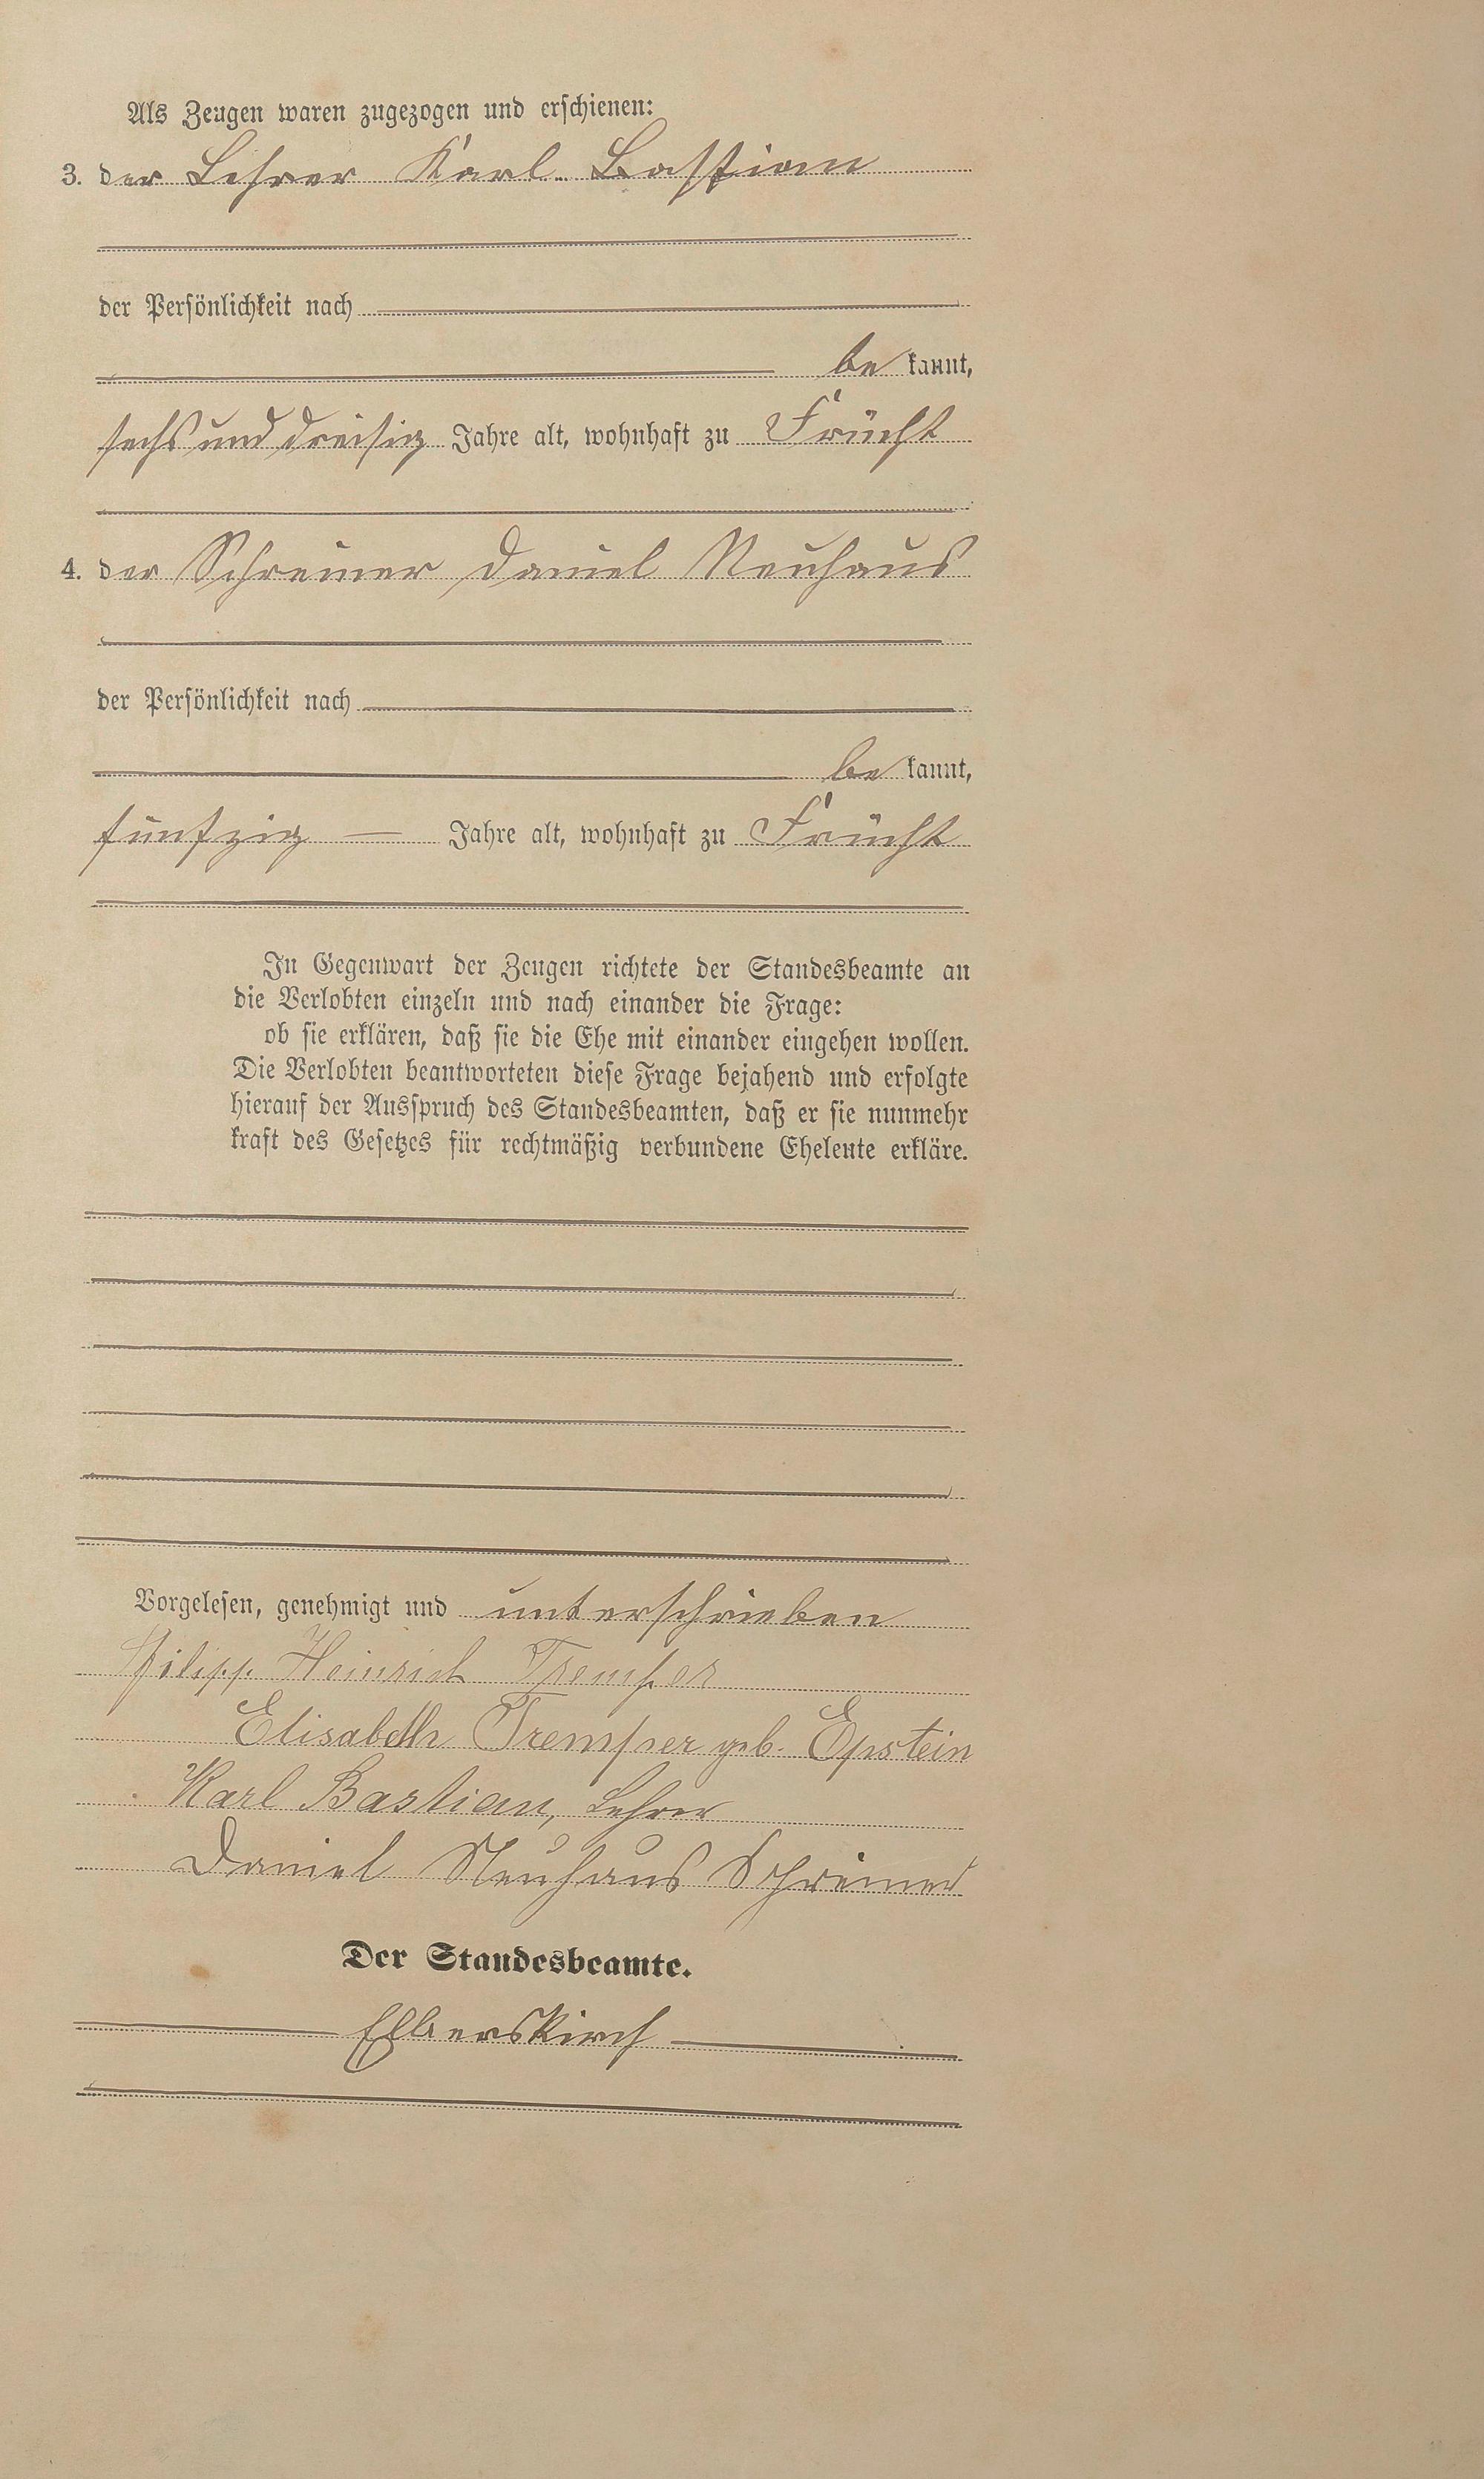 Als Zeugen waren zugezogen und erschienen:
3. der Lehrer Karl Bastian
der Persönlichkeit nach
be kannt,
sechs und dreisig Jahre alt, wohnhaft zu Frücht
4. der Schreiner Daniel Neuhaus
der Persönlichkeit nach
be kannt,
fünfzig — Jahre alt, wohnhaft zu Frücht
In Gegenwart der Zeugen richtete der Standesbeamte an
die Verlobten einzeln und nach einander die Frage:
ob sie erklären, daß sie die Ehe mit einander eingehen wollen.
Die Verlobten beantworteten diese Frage bejahend und erfolgte
hierauf der Ausspruch des Standesbeamten, daß er sie nunmehr
kraft des Gesetzes für rechtmäßig verbundene Eheleute erkläre.
Vorgelesen, genehmigt und unterschrieben
Philipp Heinrich Tremper
Elisabeth Tremper geb. Epstein
Karl Bastian, Lehrer
Daniel Neuhaus Schreiner
Der Standesbeamte.
Elberskirch